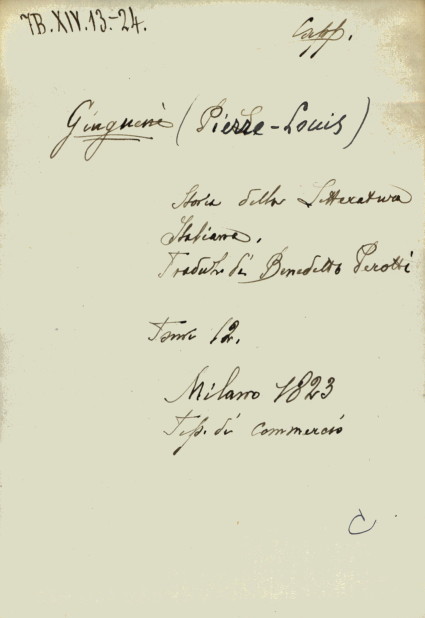 7B.XIV.13.-24.
Capp.
Ginguené (Pierre-Louis)
Storia della Letteratura
Italiana.
Traduz. di Benedetto Perotti
Tomi 12.
Milano 1823
Tip. di commercio
C